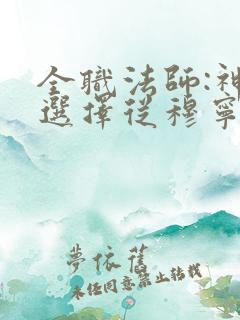 全職法師:神
選擇從穆寧
夢依舊
未經同意禁止轉載